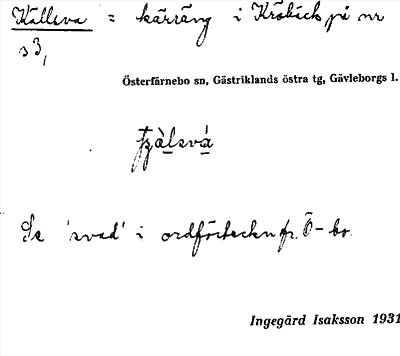 Källsva = kärräng i Kräbäck på nr
s3,
Österfärnebo sn, Gästriklands östra tg, Gävleborgs l.
Se 'svad' i ordförteckn fr. Ö-bo.
Ingegärd Isaksson 1931